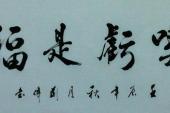 吃虧是福
壬辰年秋月劉偉書